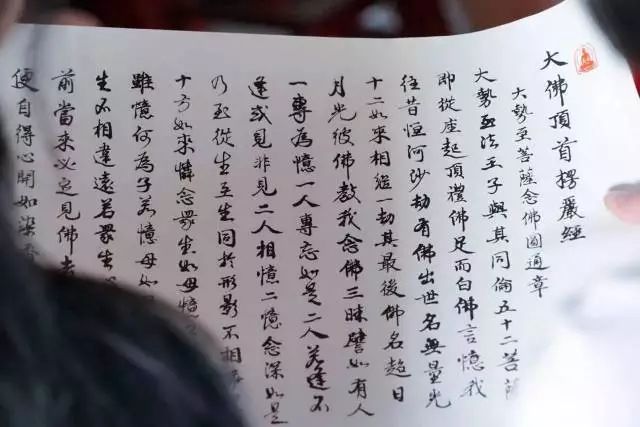 大佛頂首楞嚴經
大勢至菩薩念佛圓通章
大勢至法王子與其同倫五十二菩薩
即從座起頂禮佛足而白佛言憶我
往昔恒河沙劫有佛出世名無量光
十二如來相繼一劫其最後佛名超日
月光彼佛教我念佛三昧譬如有人
一專為憶一人專忘如是二人若逢不
逢或見非見二人相憶二憶念深如是
乃至從生至生同於形影不相
十方如來憐念眾生如母憶
雖憶何為子若憶母如
生不相違遠若眾生
前當來必定見佛去
便自得心開如染